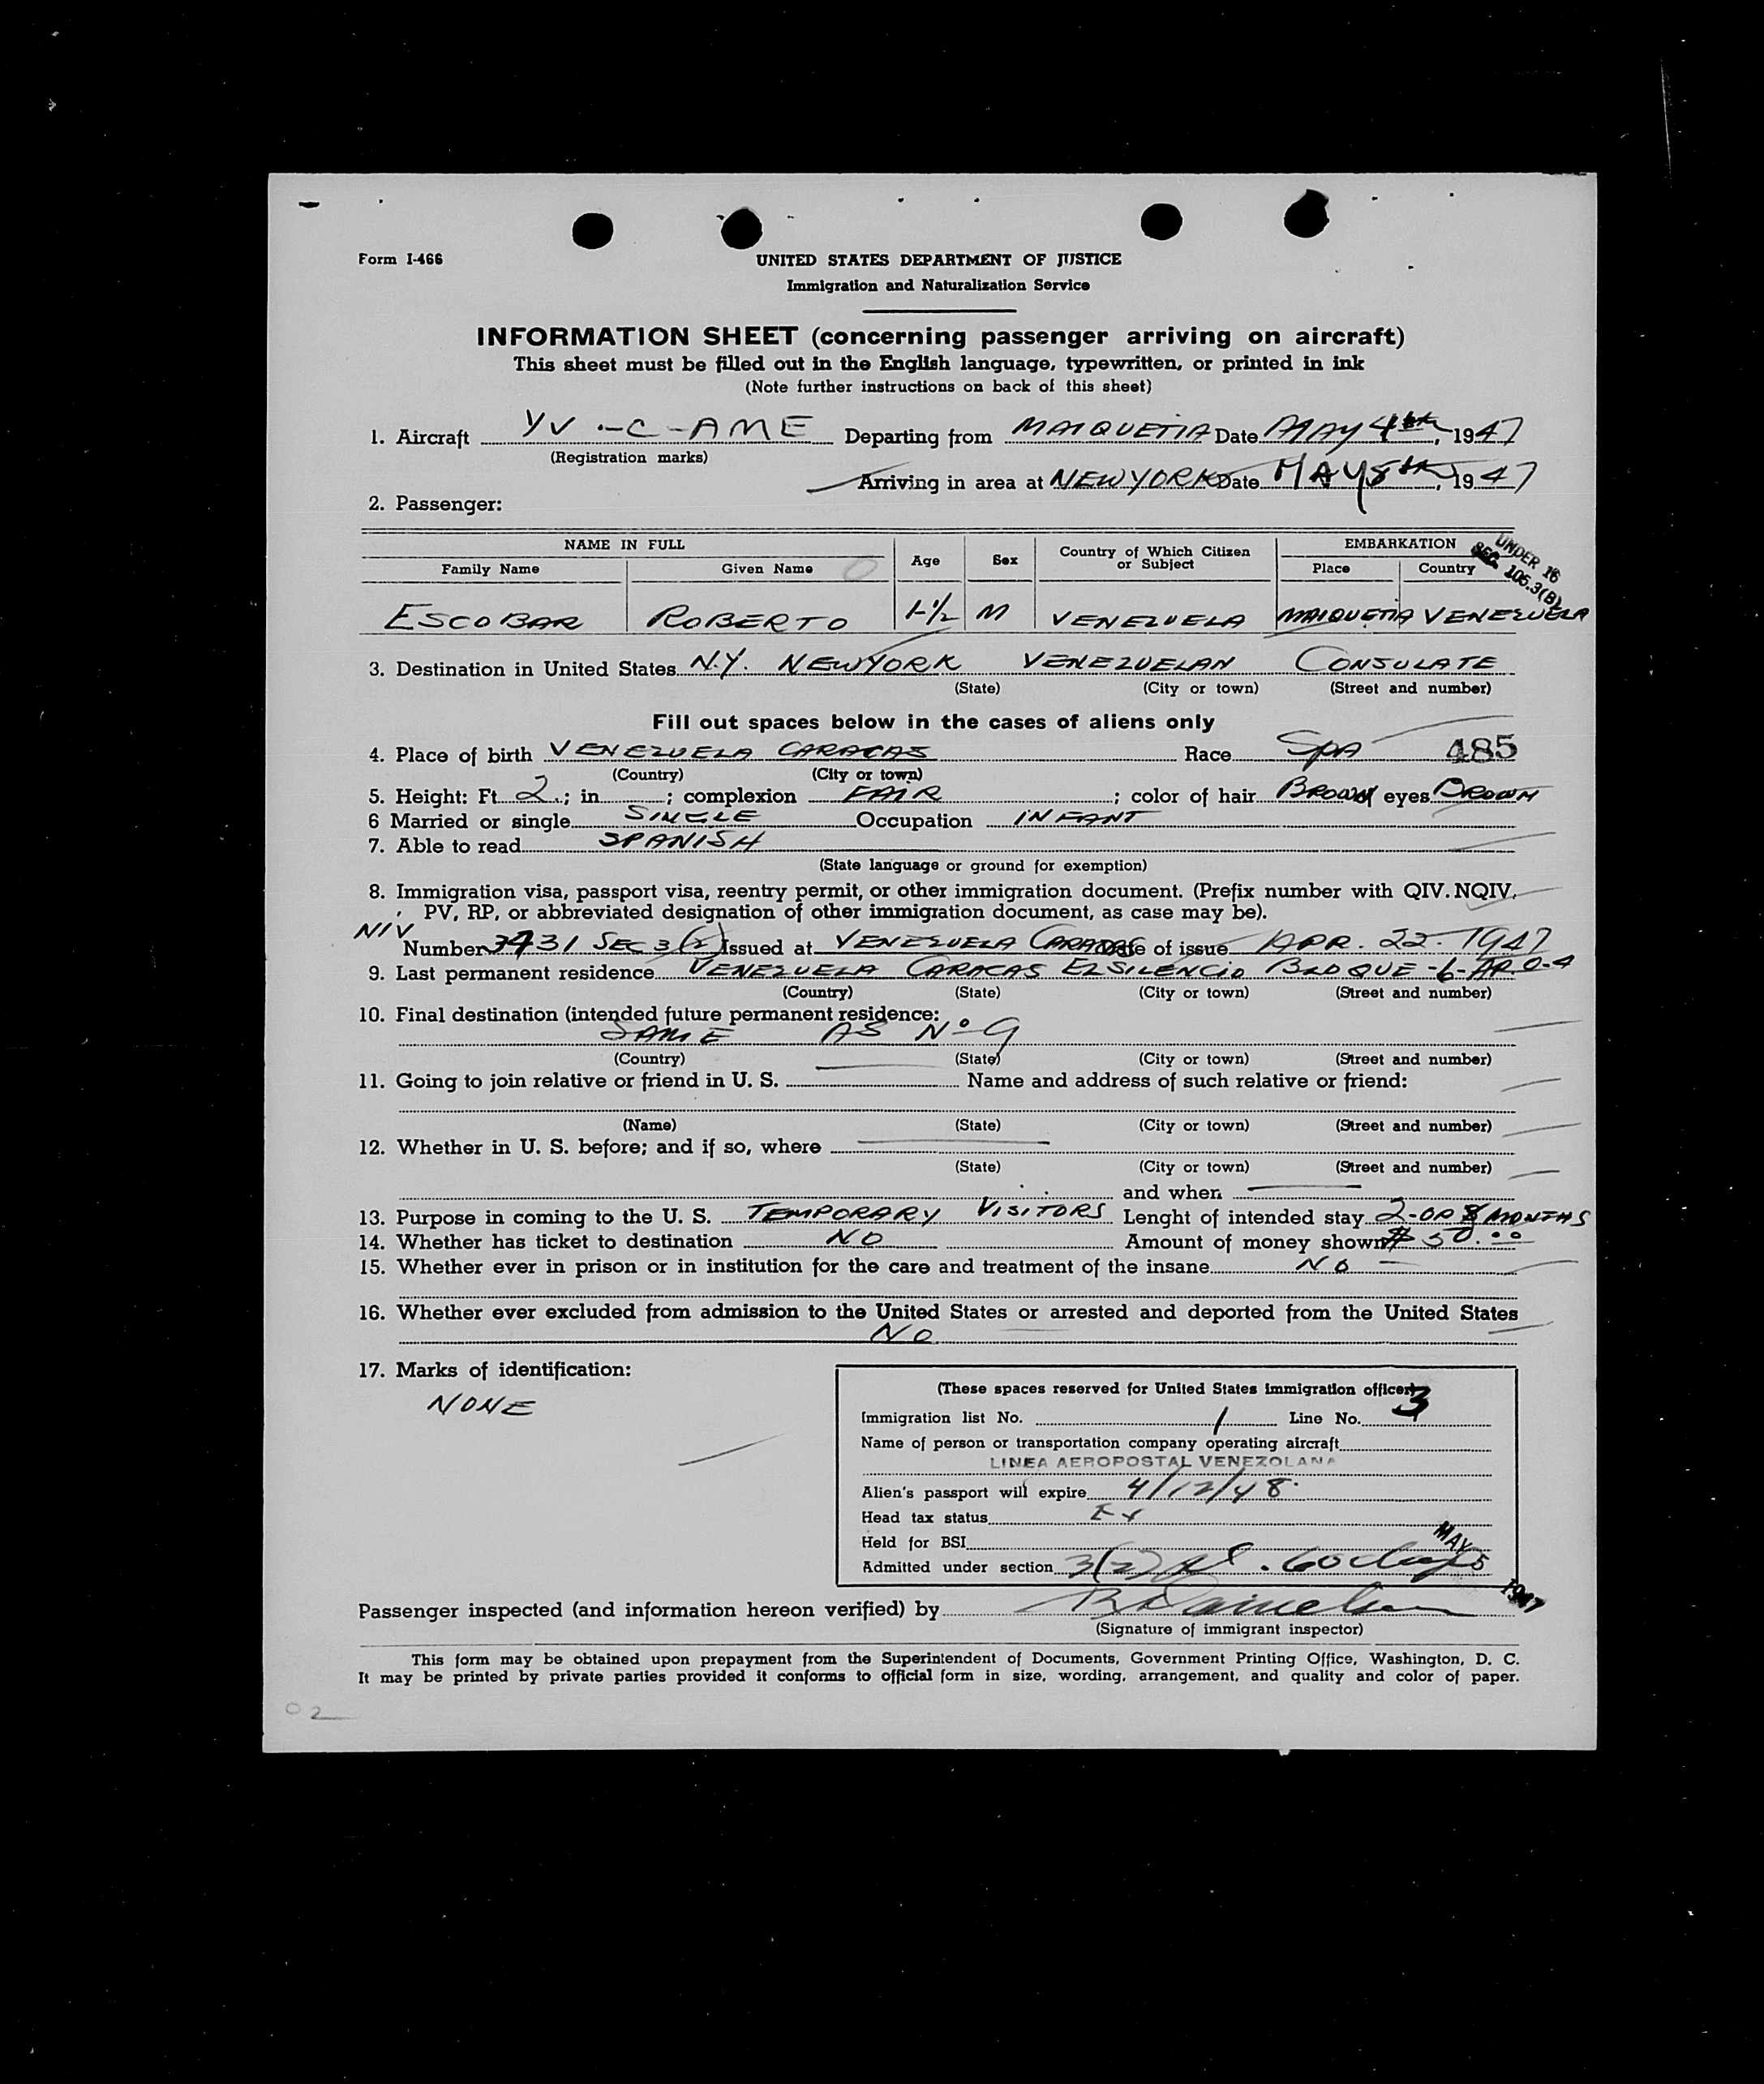 Form I-466
UNITED STATES DEPARTMENT OF JUSTICE
Immigration and Naturalization Service
INFORMATION SHEET (concerning passenger arriving on aircraft)
This sheet must be filled out in the English language, typewritten, or printed in ink
(Note further instructions on back of this sheet)
1. Aircraft YV-C-AME Departing from MAIQUETIA Date MAY 4th, 1947
(Registration marks)
Arriving in area at NEW YORK Date MAY 5th, 1947
2. Passenger:
NAME IN FULL Age Sex Country of Which Citizen or Subject EMBARKATION
Family Name Given Name Place Country
UNDER 16
SEC. 105.3(B)
ESCOBAR ROBERTO 1-½ M VENEZUELA MAIQUETIA VENEZUELA
3. Destination in United States N.Y. NEW YORK VENEZUELAN CONSULATE
(State) (City or town) (Street and number)
Fill out spaces below in the cases of aliens only
4. Place of birth VENEZUELA CARACAS Race SPA 485
(Country) (City or town)
5. Height: Ft. 2; in. ; complexion FAIR ; color of hair BROWN eyes BROWN
6 Married or single SINGLE Occupation INFANT
7. Able to read SPANISH
(State language or ground for exemption)
8. Immigration visa, passport visa, reentry permit, or other immigration document. (Prefix number with QIV. NQIV.
PV, RP, or abbreviated designation of other immigration document, as case may be).
NIV
Number 3431 SEC 3(2) Issued at VENEZUELA CARACAS Date of issue APR. 22. 1947
9. Last permanent residence VENEZUELA CARACAS EL SILENCIO BLOQUE-6-
(Country) (State) (City or town) (Street and number)
10. Final destination (intended future permanent residence:
SAME AS Nº 9
(Country) (State) (City or town) (Street and number)
11. Going to join relative or friend in U. S. Name and address of such relative or friend:
(Name) (State) (City or town) (Street and number)
12. Whether in U. S. before; and if so, where
(State) (City or town) (Street and number)
and when
13. Purpose in coming to the U. S. TEMPORARY VISITORS Lenght of intended stay 2-OR MONTHS
14. Whether has ticket to destination NO Amount of money shown $ 50.00
15. Whether ever in prison or in institution for the care and treatment of the insane NO
16. Whether ever excluded from admission to the United States or arrested and deported from the United States
NO
17. Marks of identification:
NONE
(These spaces reserved for United States immigration officer)
Immigration list No. 1 Line No. 3
Name of person or transportation company operating aircraft
LINEA AEROPOSTAL VENEZOLANA
Alien's passport will expire 4/12/48.
Head tax status Ex
Held for BSI
Admitted under section 3(2) 60 days
MAY 5 1947
Passenger inspected (and information hereon verified) by
(Signature of immigrant inspector)
This form may be obtained upon prepayment from the Superintendent of Documents, Government Printing Office, Washington, D. C.
It may be printed by private parties provided it conforms to official form in size, wording, arrangement, and quality and color of paper.
02